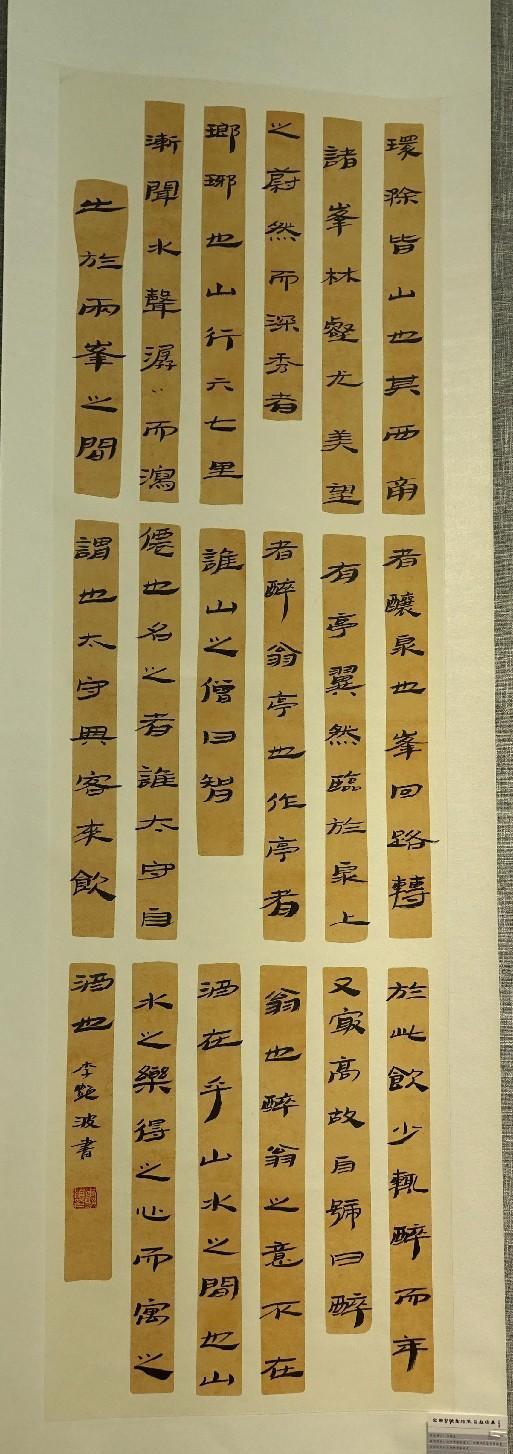 環滁皆山也其西南
諸峯林壑尤美望
之蔚然而深秀者
瑯琊也山行六七里
漸聞水聲潺〻而瀉
出於兩峯之間
者釀泉也峯回路轉
有亭翼然臨於泉上
者醉翁亭也作亭者
誰山之僧曰智
僊也名之者誰太守自
謂也太守與客來飲
於此飲少輒醉而年
又冣高故自號曰醉
翁也醉翁之意不在
酒在乎山水之間也山
水之樂得之心而寓之
酒也 李艳波書